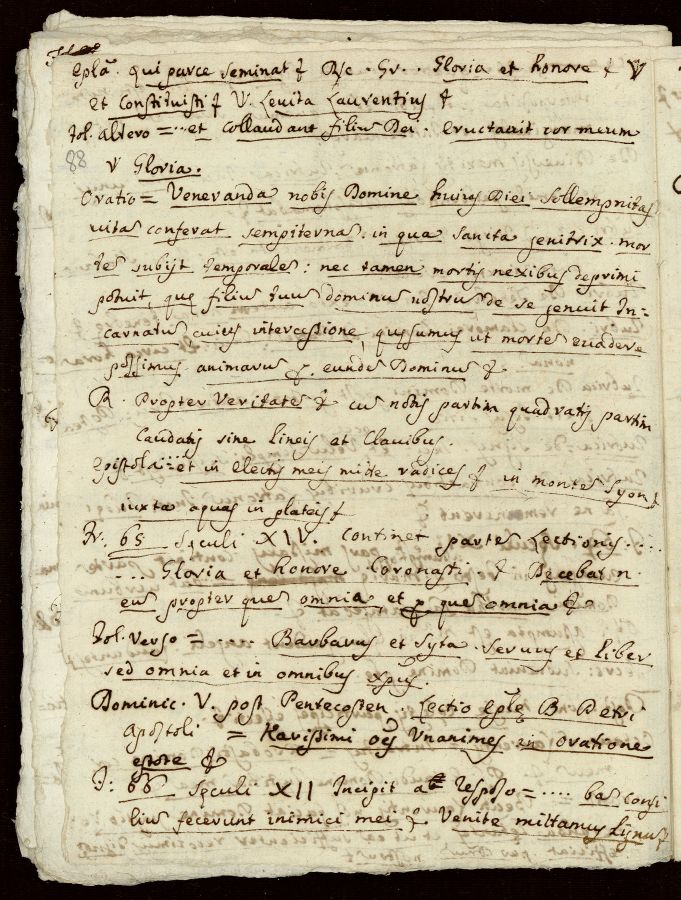 Eplã. qui parce seminat & R/e. Gr.. Gloria et honore & V
et Constituisti & V. Levita Laurentius &
fol. altero = ... et Collaudant filiū Dei. Eructavit cor meum
88
V Gloria.
Oratio = Veneranda nobis Domine huius Diei sollempnitas
vitā conferat sempiternā. in qua Sancta genitrix mor
tē subijt temporalē: nec tamen mortis nexibus deprimi
potuit, quę filiū tuū dominū nostrū de se genuit In=
carnatū cuius intercessione, quęsumus ut mortē evadere
possimus animarū &. eundē Dominū &
R. Propter Veritatē & cū notis partim quadratis partim
Caudatis sine lineis et Clavibus.
Epistola ... et in electis meis mitte radices & in monte Syon &
iuxta aquas in plateis &
Fr. 65 Sęculi XIV. Continet partē Lectionis ....
.... Gloria et honore Coronasti & Decebat n
eū propter quē omnia et p quē omnia &
fol. verso = .... Barbarus et Syta. Servus et liber
sed omnia et in omnibus xpūs.
Dominic. V. post Pentecosten. Lectio Eplę B. Petri
Apostoli = Karissimi oēs Unanimes in oratione
estote &
F: 66 Sęculi XII Incipit a Respōso = .... bā consi
liū fecerunt inimici mei & Venite mittamus Lignū &